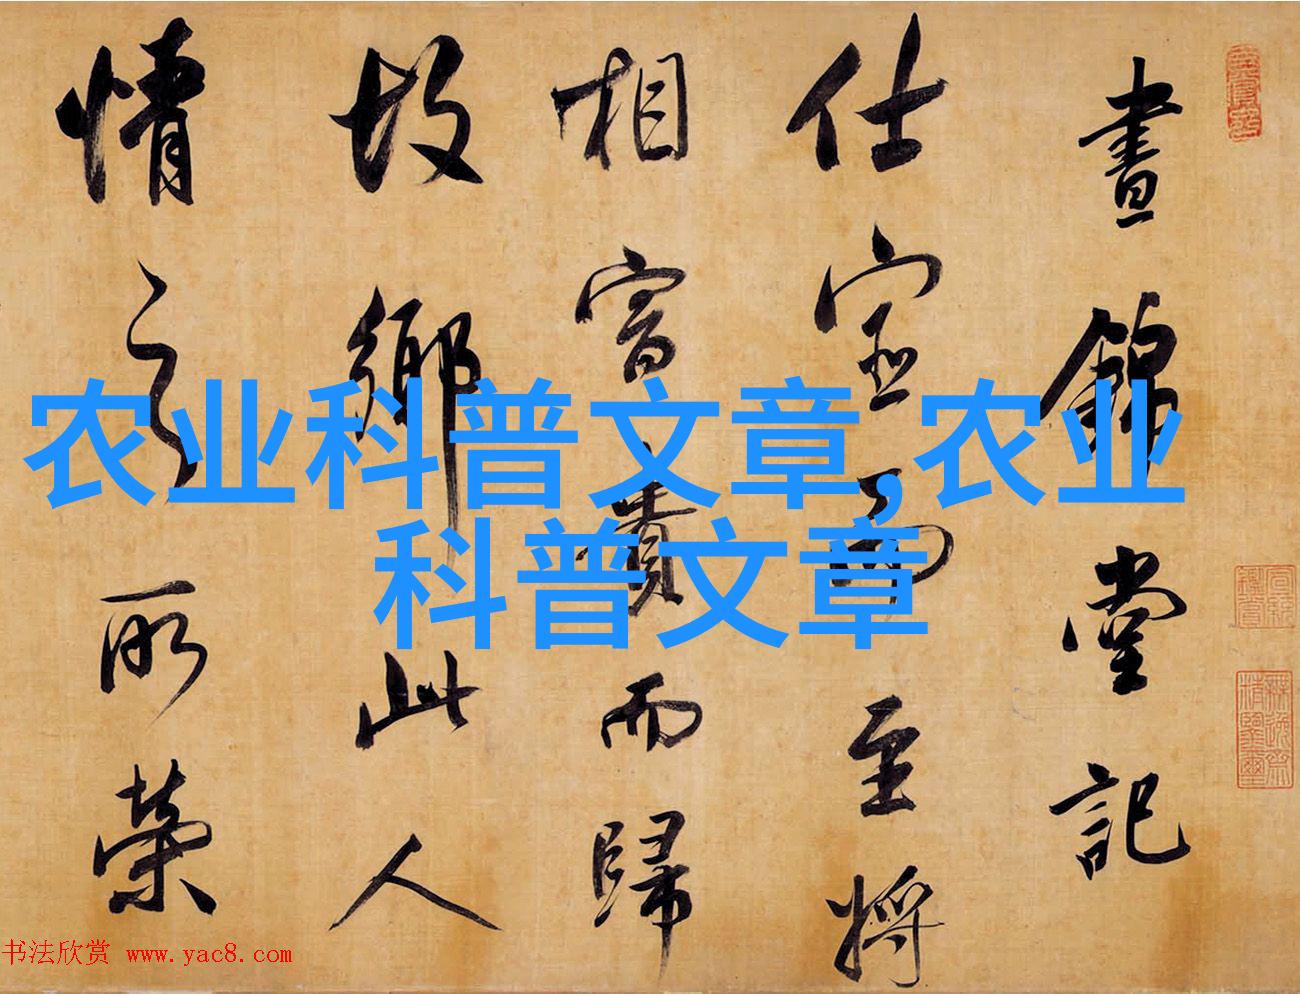 晝錦堂記
仕宦而至將
相富貴而歸
故鄉此人
情之所榮
农业科普文章,农业
科普文章
书法欣赏 www.yac8.com